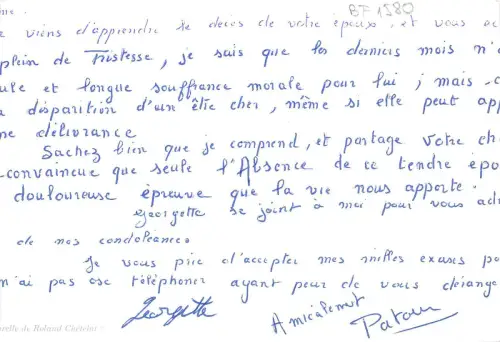 me.
BF 1580
viens d'apprendre le décès de votre époux, et vous
plein de Tristesse, je sais que les derniers mois n'
ule et longue souffrance morale pour lui ; mais
a disparition d'un être cher, même si elle peut app
ne délivrance
Sachez bien que je comprend, et partage votre cha
convaincue que seule l'Absence de ce tendre épo
douloureuse épreuve que la vie nous apporte.
Georgette se joint à moi pour vous adr
de nos condoléances
Je vous prie d'accepter mes milles exuses po
n'ai pas osé téléphoner ayant peur de vous dérange
Georgette
Amicalement
relle de Roland Chételat